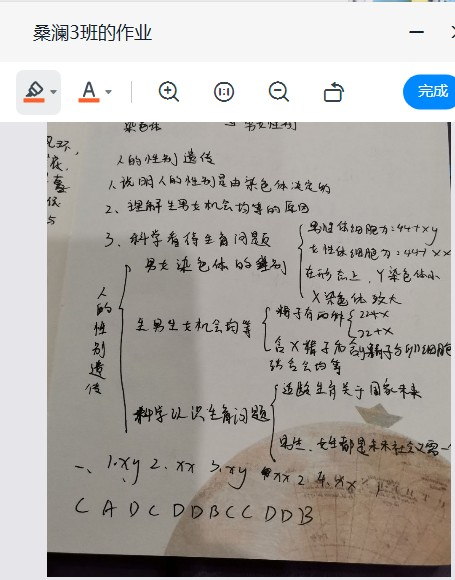 桑澜3班的作业
A
1:1
完成
染色体 与 男女性别
人的性别遗传
1、说明人的性别是由染色体决定的
2、理解生男女机会均等的原因
3、科学看待生育问题
人的性别遗传
男女染色体的差别
男性体细胞为:44+xy
女性体细胞为:44+xx
在形态上,Y染色体小
X染色体较大
生男生女机会均等
精子有两种
22+x
22+x
含X精子和含y精子与卵细胞
结合会均等
科学认识生育问题
适龄生育关于国家未来
男生、女生都是未来社会又需一
一、1.xy 2. xx 3. xy xx 2 4. xx
C A D C D D B C C D D B